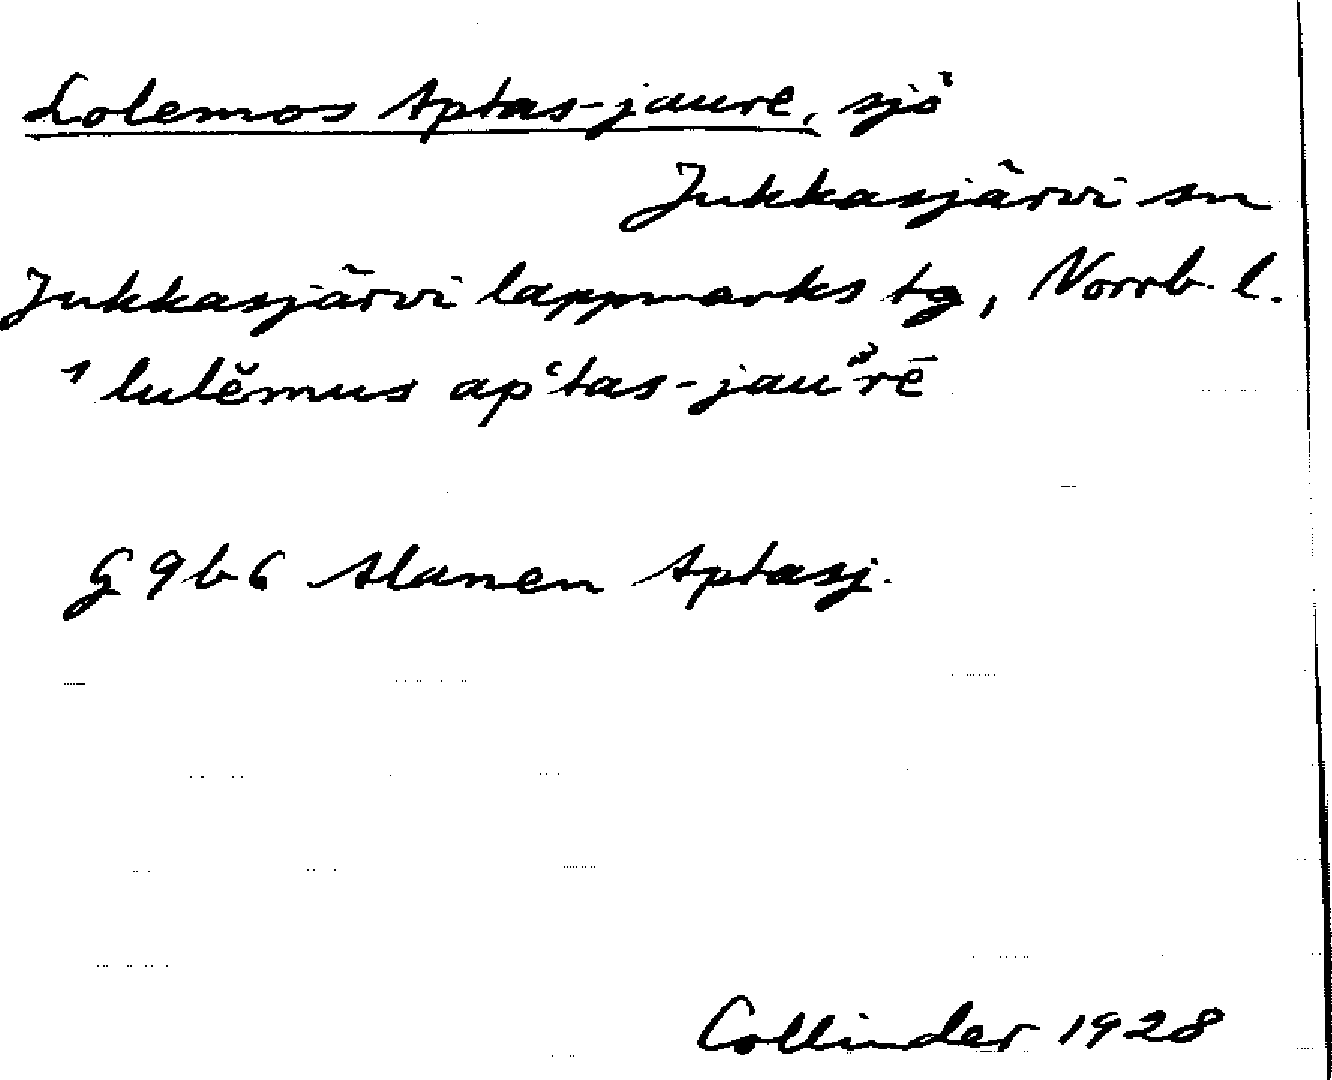 Lolemos Aptas-jaure, sjö
Jukkasjärvi sn
Jukkasjärvi lappmarks tg, Norrb. l.
1 lulĕmus apʿtas-jauᵊrē
G 9 b 6 Alanen Aptasj.
Collinder 1928